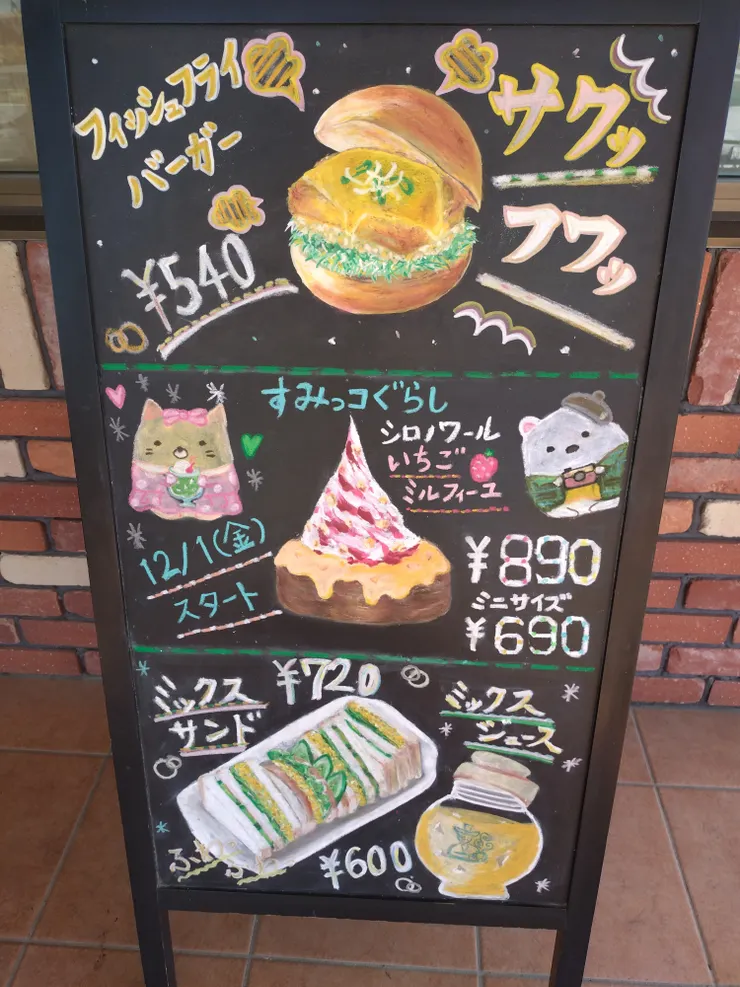 フィッシュフライ
バーガー
¥540
サクッ
フワッ
すみっコぐらし
シロノワール
いちご
ミルフィーユ
12/1(金)
スタート
¥890
ミニサイズ
¥690
ミックス
サンド
¥720
ミックス
ジュース
¥600